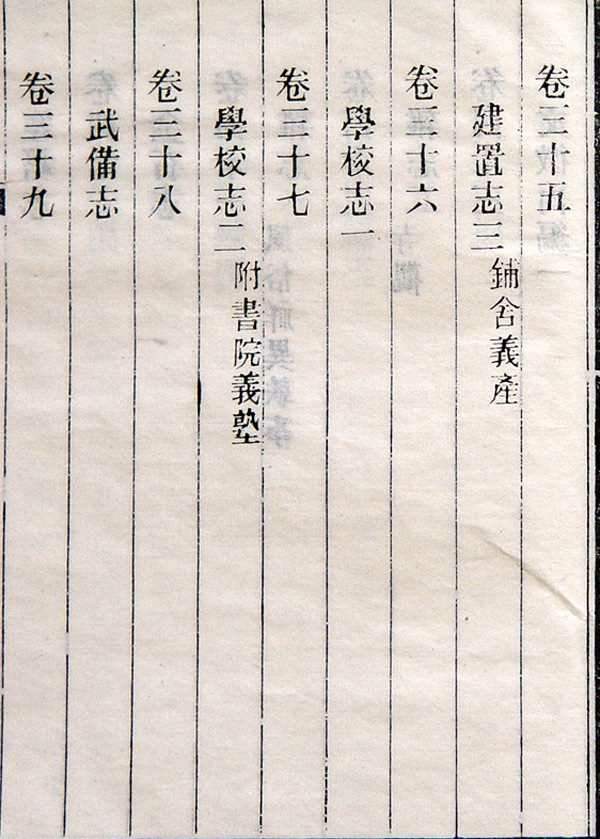 卷三十五
建置志三 鋪舍義產
卷三十六
學校志一
卷三十七
學校志二 附書院義塾
卷三十八
武備志
卷三十九